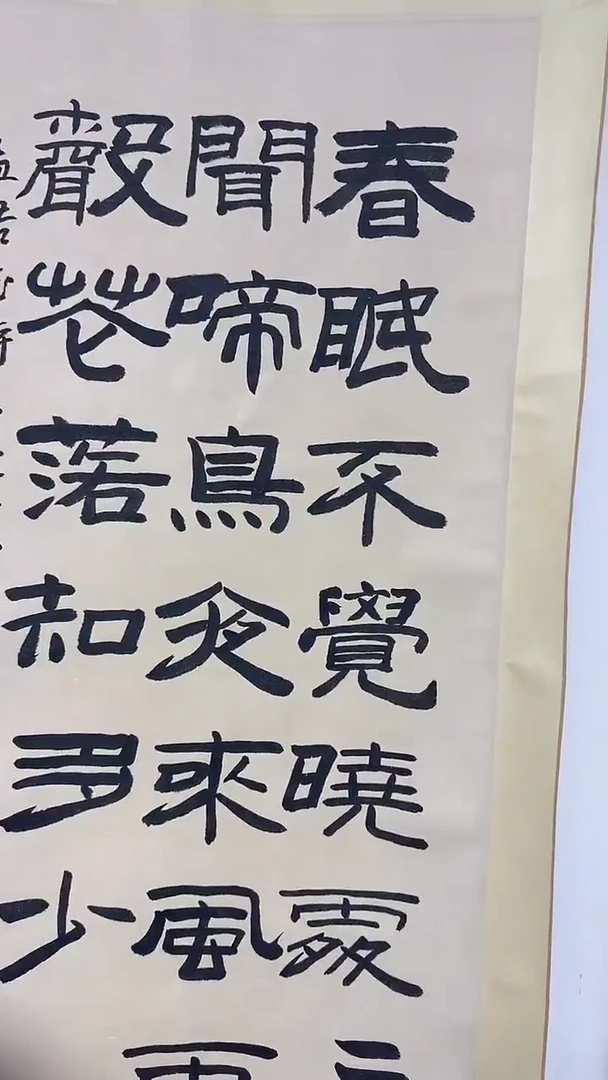 春眠不覺曉處
聞啼鳥夜來風雨
聲花落知多少